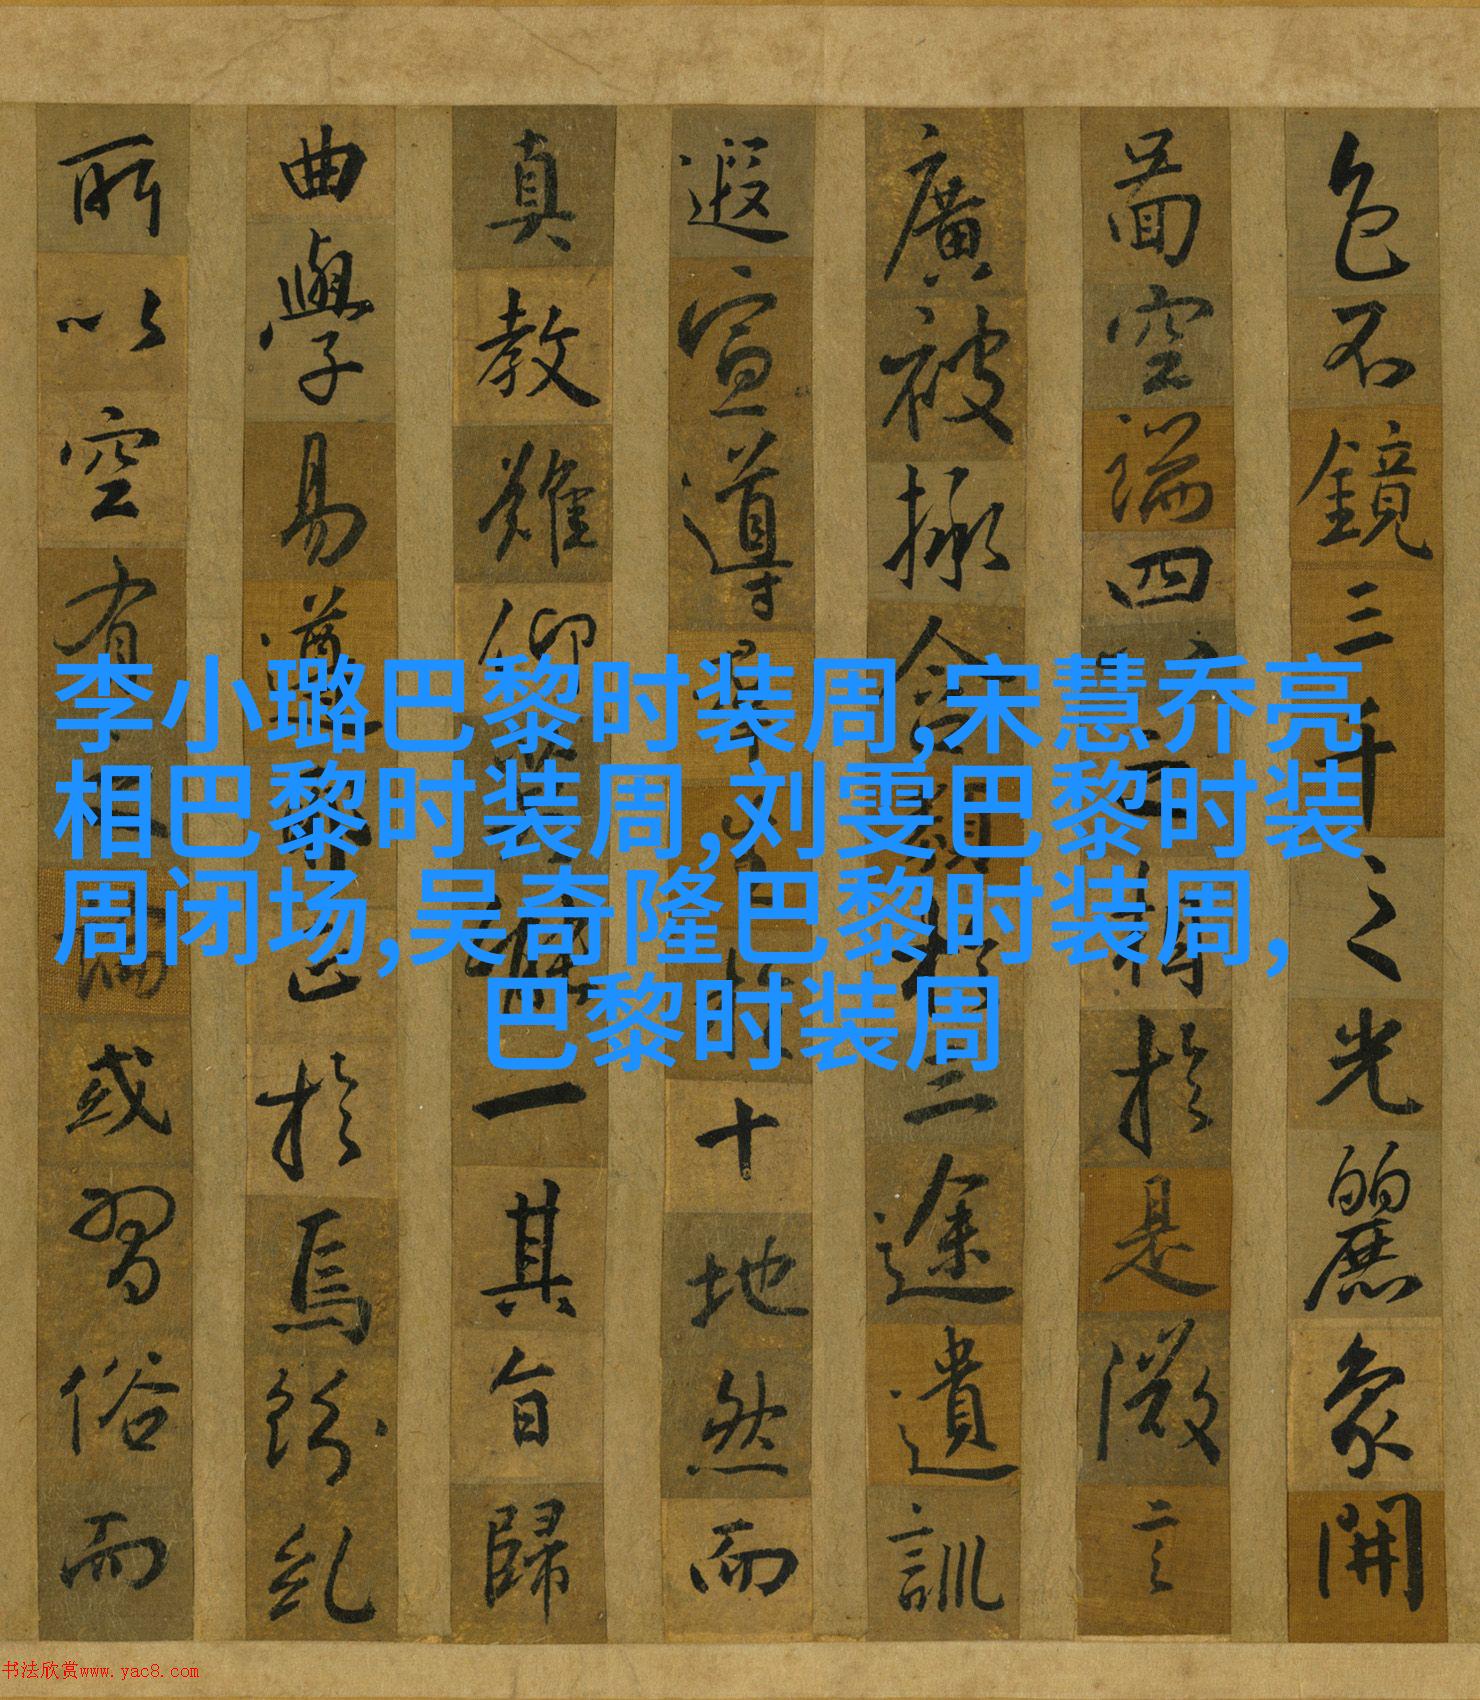 色不鏡三千之光麗象開
啚空端四八之相於是微言
廣被拯含類於三途遺訓
遐宣導群生於十地然而
真教難仰莫能一其旨歸
曲學易遵正於焉紛糺
所以空有論或習俗而
李小璐巴黎时装周,宋慧乔亮
相巴黎时装周,刘雯巴黎时装
周闭场,吴奇隆巴黎时装周,
巴黎时装周
书法欣赏www.yac8.com